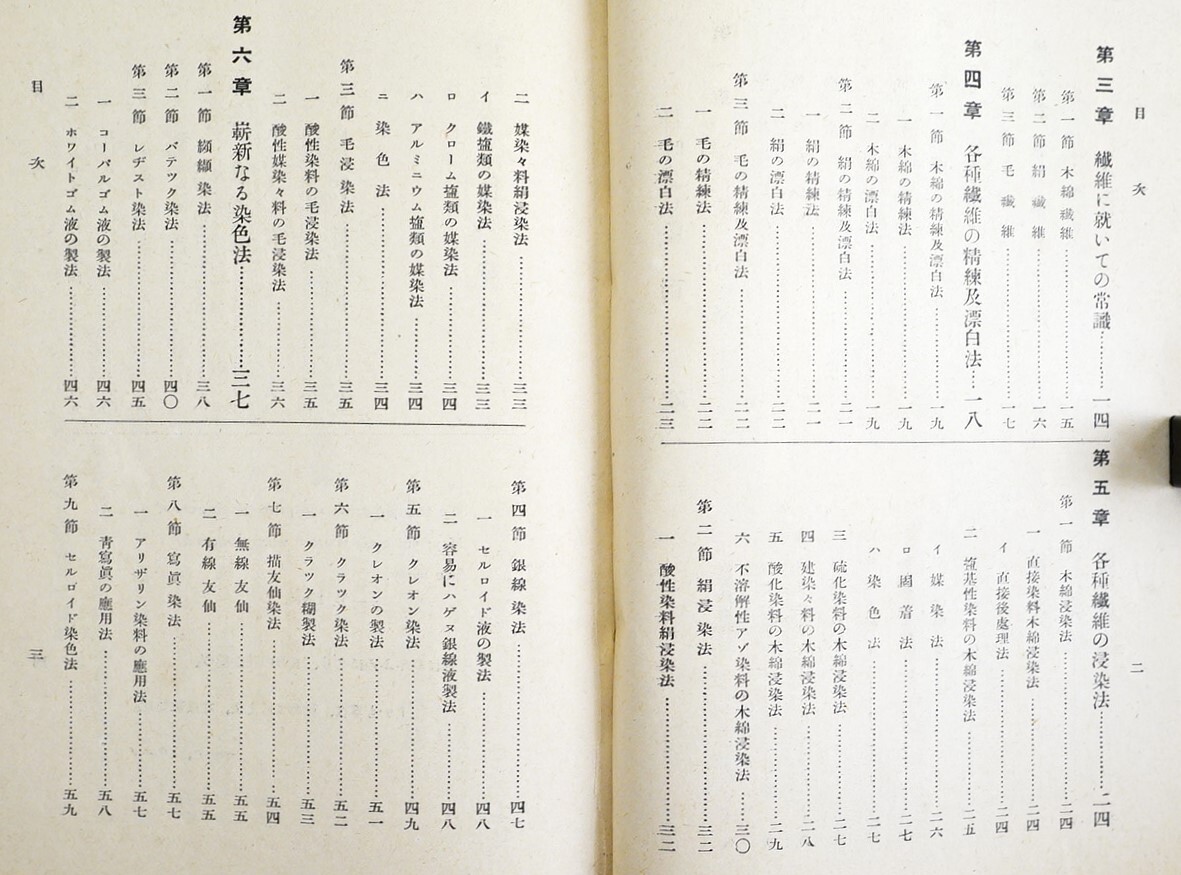 目次
二
第三章 纎維に就いての常識……一四
第一節 木綿纎維……一五
第二節 絹纎維……一六
第三節 毛纎維……一七
第四章 各種纎維の精練及漂白法……一八
第一節 木綿の精練及漂白法……一九
一 木綿の精練法……一九
二 木綿の漂白法……一九
第二節 絹の精練及漂白法……二一
一 絹の精練法……二一
二 絹の漂白法……二二
第三節 毛の精練及漂白法……二二
一 毛の精練法……二二
二 毛の漂白法……二三
第五章 各種纎維の浸染法……二四
第一節 木綿浸染法……二四
一 直接染料木綿浸染法……二四
イ 直接後處理法……二四
二 塩基性染料の木綿浸染法……二五
イ 媒染法……二六
ロ 固着法……二七
ハ 染色法……二七
三 硫化染料の木綿浸染法……二七
四 建染々料の木綿浸染法……二八
五 酸化染料の木綿浸染法……二九
六 不溶解性アゾ染料の木綿浸染法……三〇
第二節 絹浸染法……三二
一 酸性染料絹浸染法……三二
二 媒染々料絹浸染法……三三
イ 鐵塩類の媒染法……三三
ロ クローム塩類の媒染法……三四
ハ アルミニウム塩類の媒染法……三四
ニ 染色法……三四
第三節 毛浸染法……三五
一 酸性染料の毛浸染法……三五
二 酸性媒染々料の毛浸染法……三六
第六章 嶄新なる染色法……三七
第一節 纐纈染法……三八
第二節 バテツク染法……四〇
第三節 レヂスト染法……四五
一 コーパルゴム液の製法……四六
二 ホワイトゴム液の製法……四六
第四節 銀線染法……四七
一 セルロイド液の製法……四八
二 容易にハゲヌ銀線液製法……四八
第五節 クレオン染法……四九
一 クレオンの製法……五一
第六節 クラツク染法……五二
一 クラツク糊製法……五三
第七節 描友仙染法……五四
一 無線友仙……五五
二 有線友仙……五五
第八節 寫眞染法……五七
一 アリザリン染料の應用法……五七
二 靑寫眞の應用法……五八
第九節 セルロイド染色法……五九
目次
三